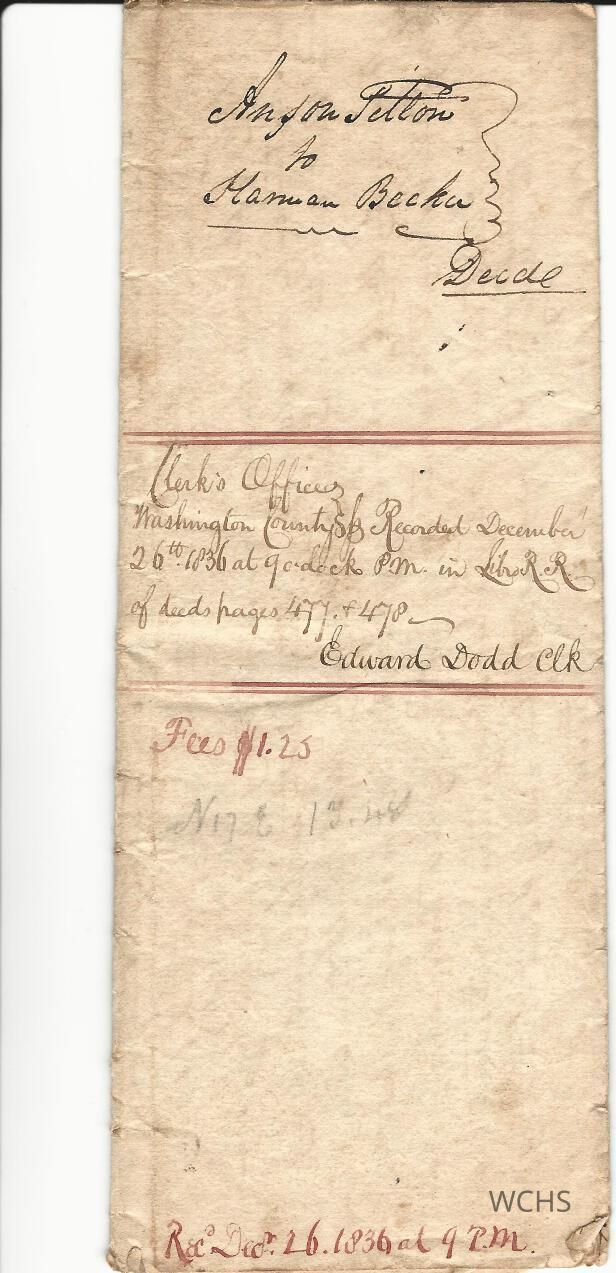 Anson Tilton
to
Harman Becker
Deede
Clerk's Office
Washington County Ss Recorded December
26th. 1836 at 9 o'clock P.M. in Libro R.R.
of deeds pages 477. & 478
Edward Dodd Clk
Fees $1.25
N17 E 13.48
Recd Decr. 26. 1836 at 9 P.M.
WCHS